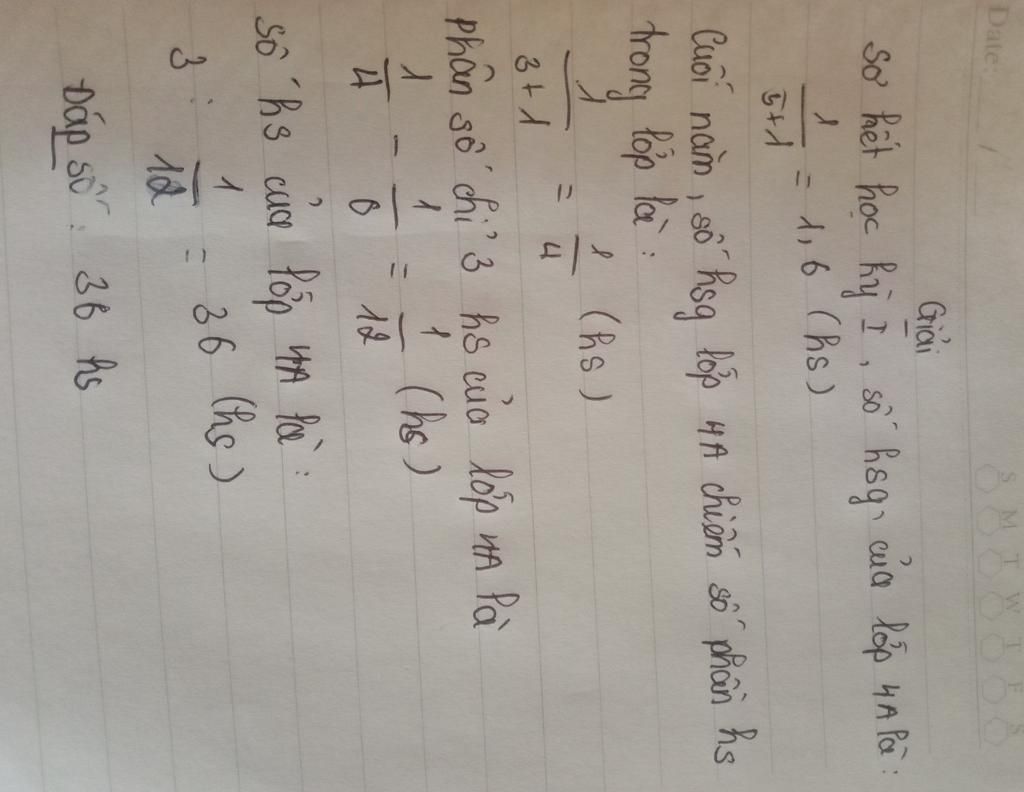 Date:
S M T W T F S
Giải
Sơ kết học kỳ I, số hsg của lớp 4A là:
1/5+1 = 1,6 (hs)
Cuối năm, số hsg lớp 4A chiếm số phần hs
trong lớp là:
1/3+1 = 1/4 (hs)
phân số chỉ 3 hs của lớp 4A là
1/4 - 1/6 = 1/12 (hs)
Số hs của lớp 4A là:
3 : 1/12 = 36 (hs)
Đáp số: 36 hs